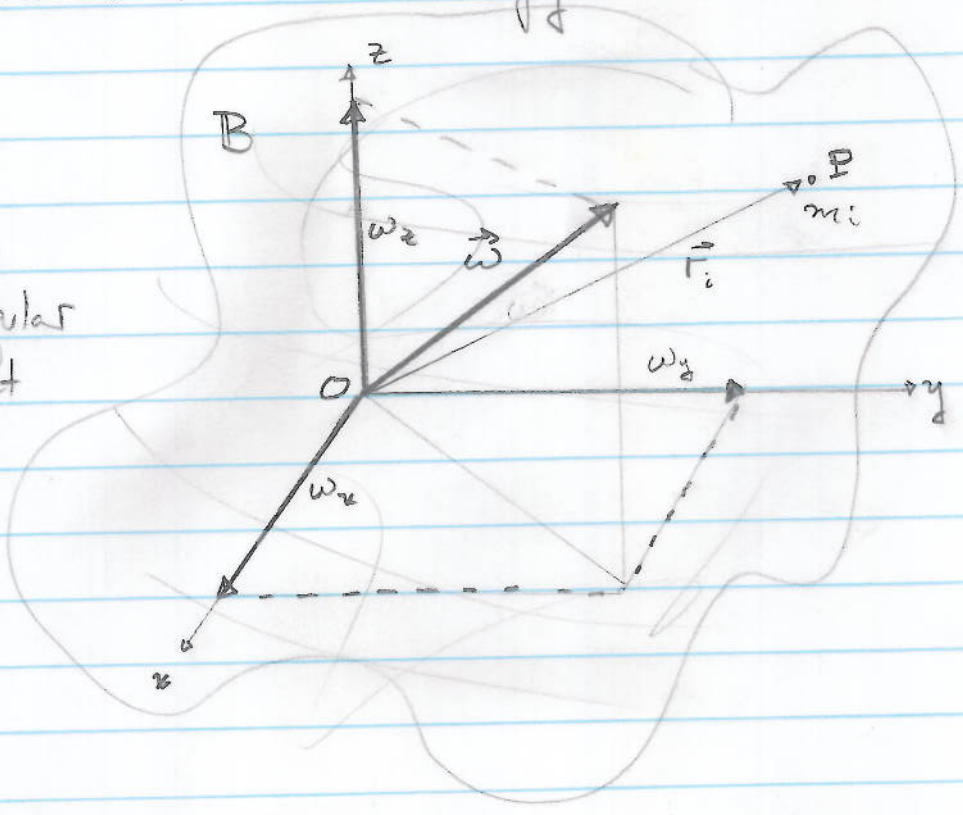 z
B
P
m_i
ω_z
ω⃗
r⃗_i
ular
t
O
ω_y
y
ω_x
x